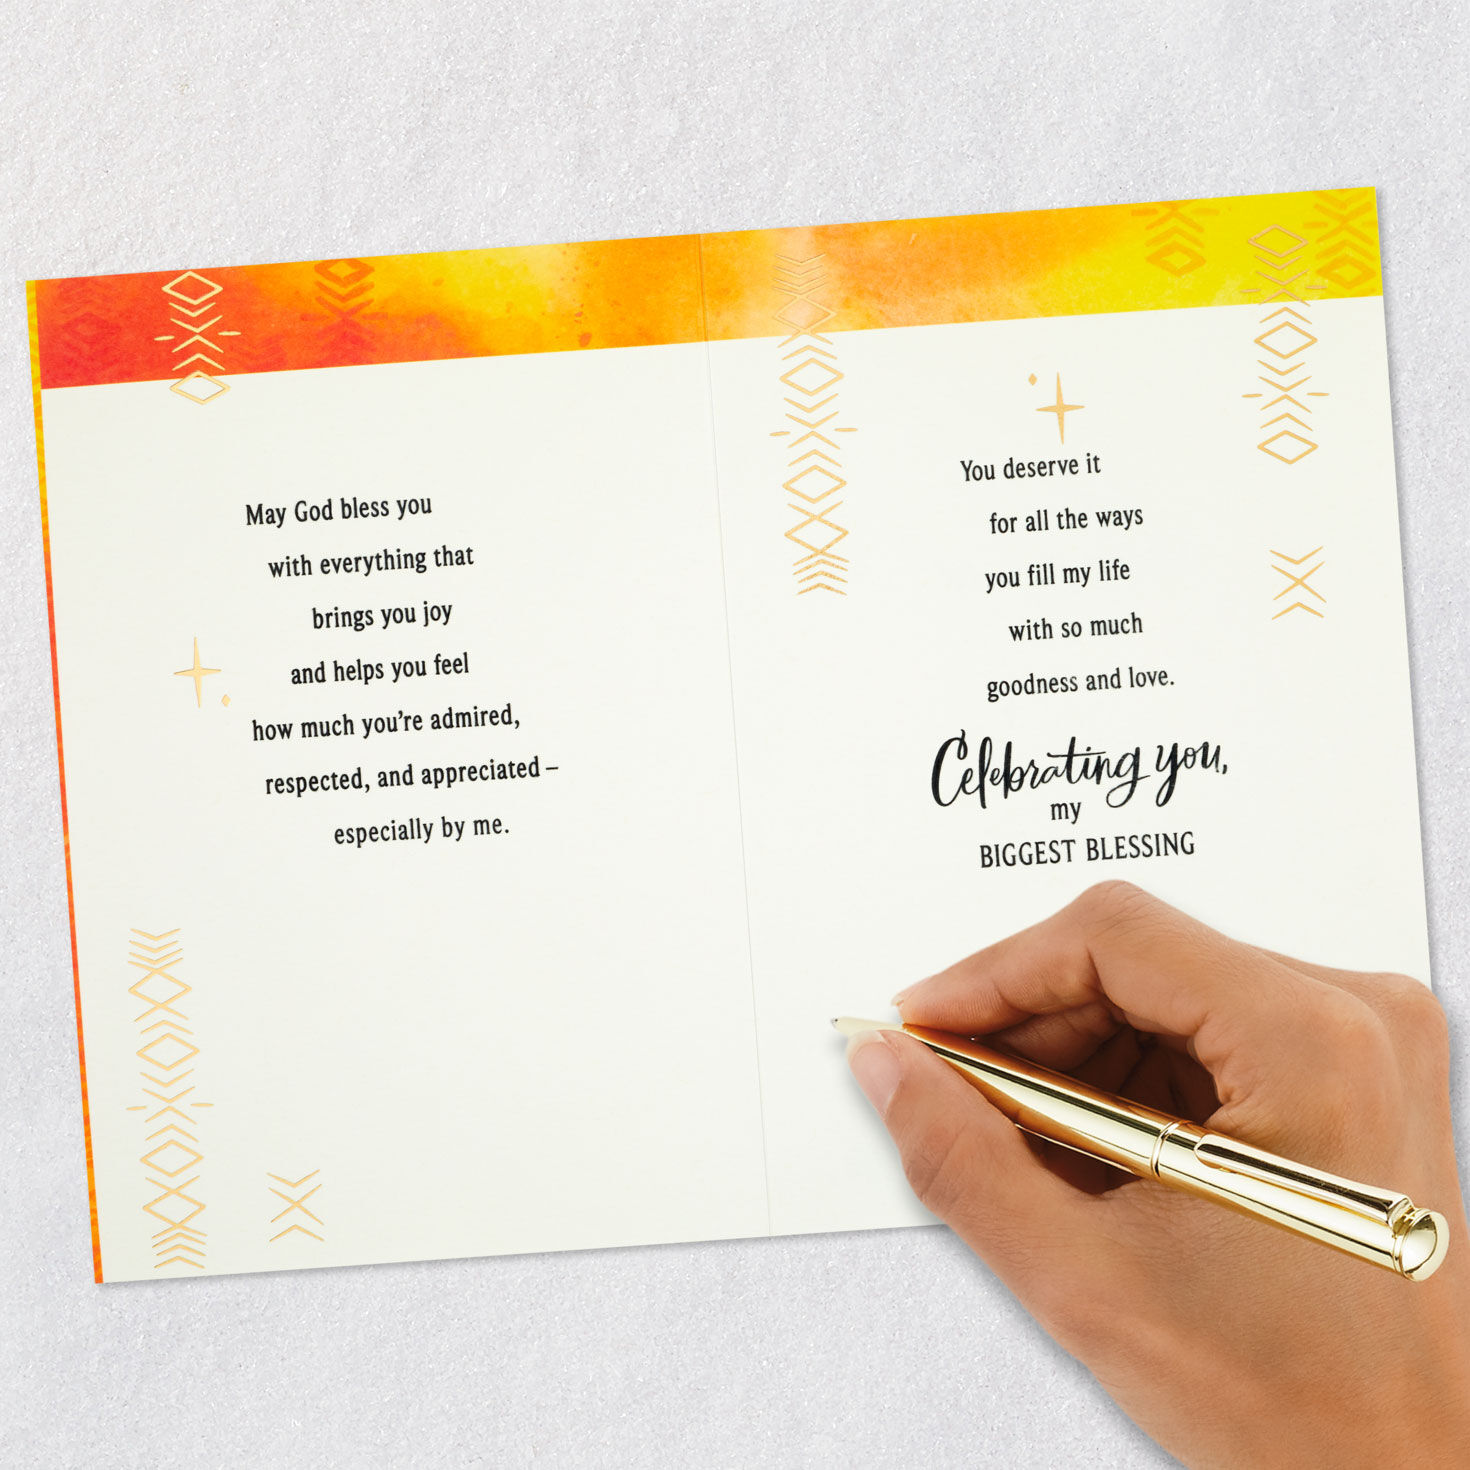 May God bless you
with everything that
brings you joy
and helps you feel
how much you're admired,
respected, and appreciated –
especially by me.
You deserve it
for all the ways
you fill my life
with so much
goodness and love.
Celebrating you,
my
BIGGEST BLESSING